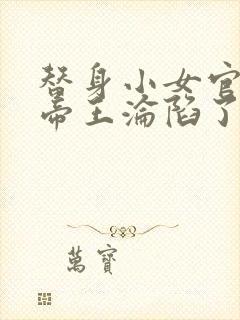 替身小女官
帝王淪陷了
萬寶